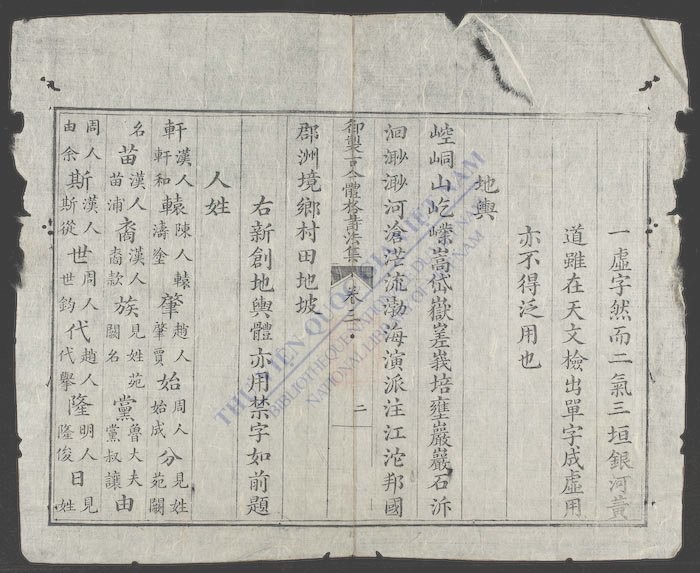 一虛字然而二氣三垣銀河黃
道雖在天文檢出單字成虛用
亦不得泛用也
地輿
崆峒山屹嶸嵩岱嶽嵳峩培壅巖巖石泝
洄渺渺河滄茫流渤海演派注江沱邦國
御製古今體格詩法集
卷三
二
郡洲境鄉村田地坡
右新創地輿體亦用禁字如前題
人姓
軒漢人軒和轅陳人轅濤塗肇趙人肇賈始周人始成分見姓苑闕
名苗漢人苗浦裔漢人裔款族見姓苑闕名黨魯大夫黨叔讓由
周人由余斯漢人斯從世周人世鈞代趙人代舉隆明人隆俊日見姓
THƯ VIỆN QUỐC GIA VIỆT NAM
BIBLIOTHEQUE NATIONALE DU VIETNAM
NATIONAL LIBRARY OF VIETNAM